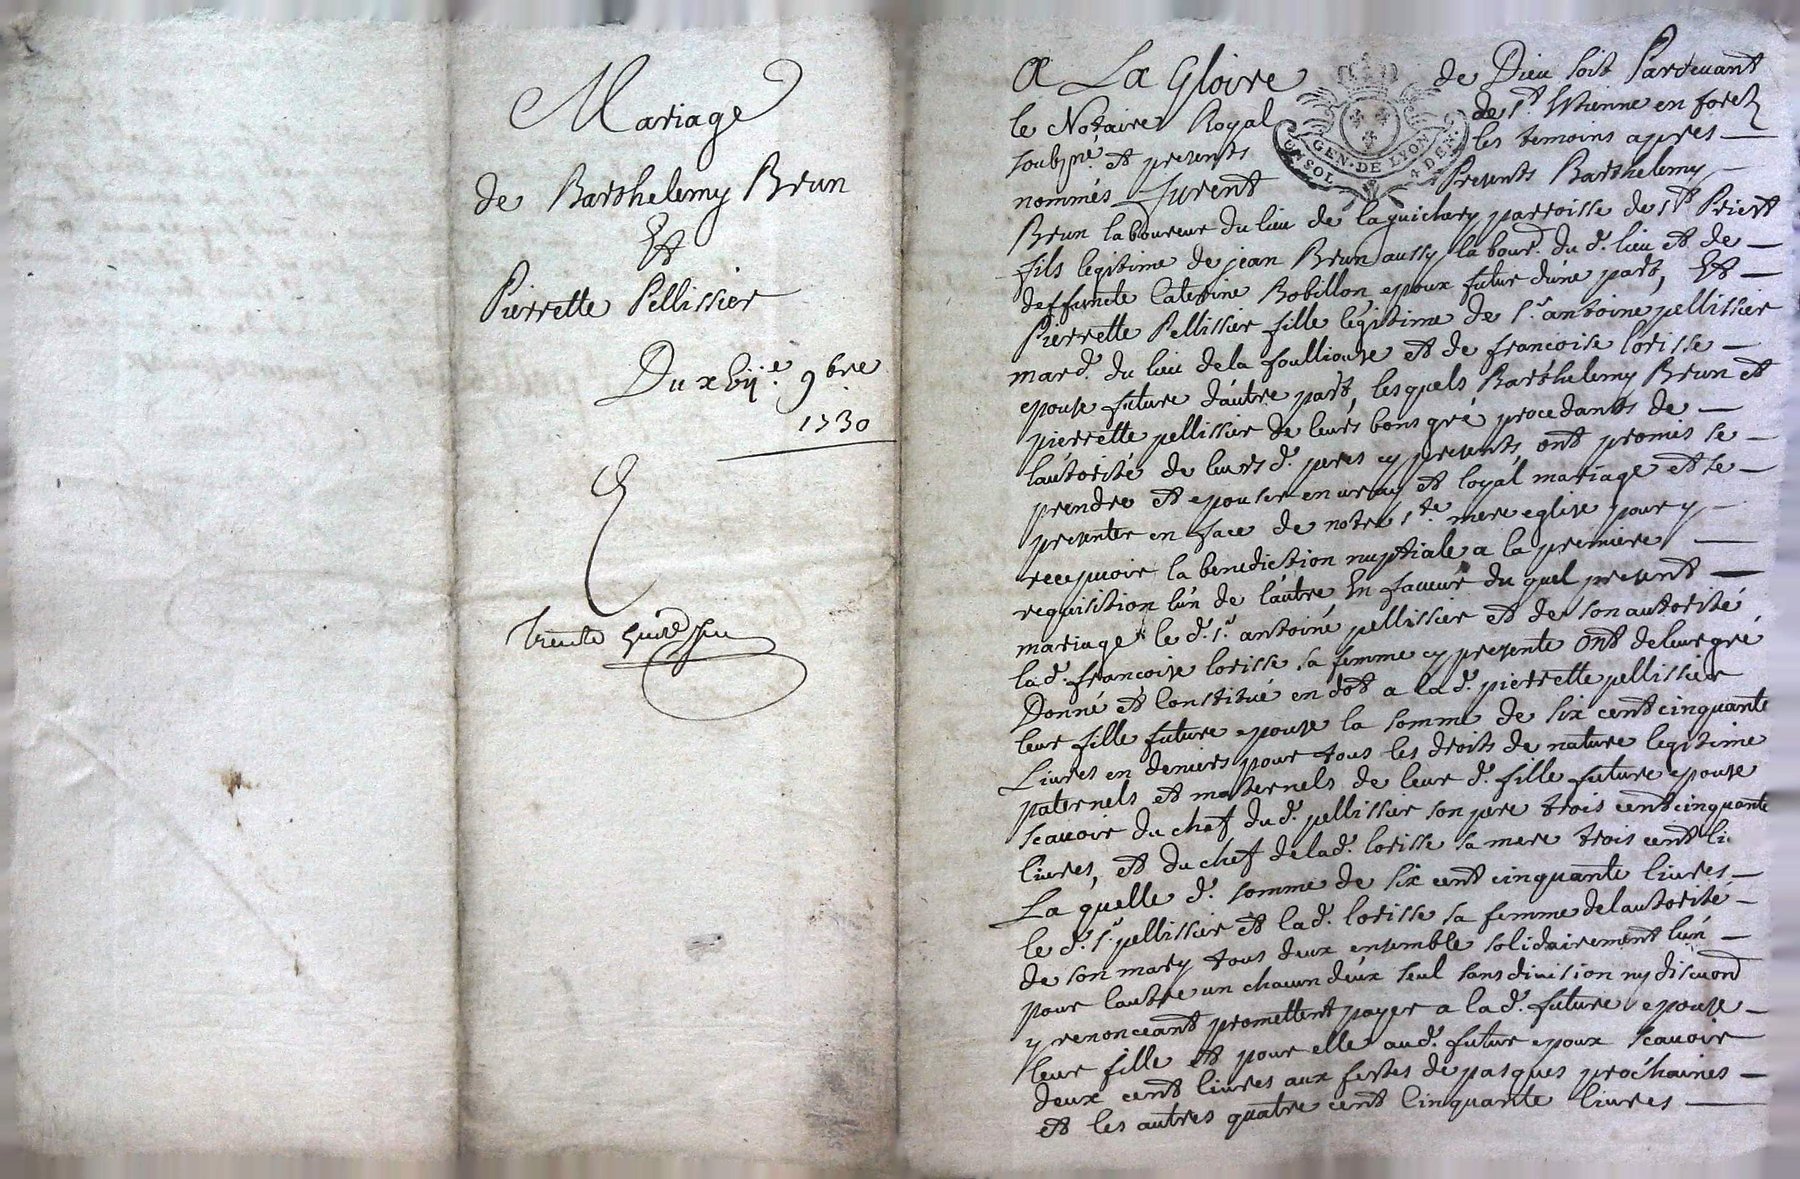 Mariage
de Barthelemy Brun
Et
Pierrette Pellissier
Du xvij.e 9bre
1730
Trente
A La Gloire de Dieu soit Pardevant
le Notaire Royal de St. Etienne en forez
soubzné et presents les temoins apres
nommés furent Presents Barthelemy
Brun laboureur du lieu de laguichary parroisse de St. Priest
fils legitime de jean Brun aussy labour. du d. lieu et de
deffuncte Caterine Robillon epoux futur d'une part, Et
Pierrette Pellissier fille légitime de sr. antoine pellissier
mard. du lieu de la foulliouse et de francoise Corisse
epouse future d'autre part, lesquels Barthelemy Brun et
pierrette pellissier de leurs bons gré procedants de
l'autorité de leurs d. peres cy presents, ont promis se
prendre et epouser en vray et loyal mariage et se
presenter en face de notre ste. mere eglise pour y
recepvoir la benediction nuptiale a la premiere
requisition l'un de l'autre En faveur du quel present
mariage le d. sr. antoine pellissier et de son autorité
la d. francoise Corisse sa femme cy presente Ont de leur gré
Donné et Constitué en dot a la d. pierrette pellissier
leur fille future epouse la somme de six cent cinquante
Livres en deniers pour tous les droits de nature legitime
paternels et maternels de leur d. fille future epouse
scavoir du chef du d. pellissier son pere trois cent cinquante
livres, et du chef de la d. Corisse sa mere trois cent li
La quelle d. somme de six cent cinquante livres
le d. sr. pellissier et la d. Corisse sa femme de l autorité
de son mary tous deux ensemble solidairement l'un
pour l'autre un chacun d'eux seul sans division ny discuon
y renonceant promettent payer a la d. future epouse
leur fille et pour elle au d. futur epoux scavoir
deux cent livres aux festes de pasques prochaines
et les autres quatre cent Cinquante livres
GEN. DE LYON